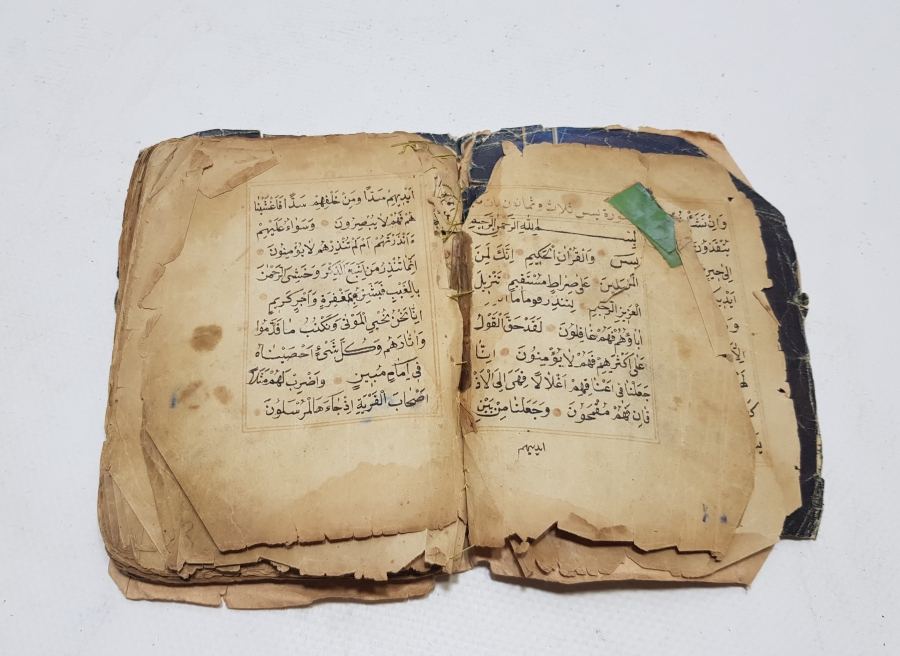 رة يس ثلاث وثمانون
بسم الله الرحمن الرحيم
يس والقران الحكيم انك لمن
المرسلين على صراط مستقيم تنزيل
العزيز الرحيم لتنذر قوما ما
اباؤهم فهم غافلون لقد حق القول
على اكثرهم فهم لا يؤمنون انا
جعلنا فى اعناقهم اغلالا فهى الى الاذ
قان فهم مقمحون وجعلنا من بين
ايديهم
ايديهم سدا ومن خلفهم سدا فاغشينا
هم فهم لا يبصرون وسواء عليهم
ءانذرتهم ام لم تنذرهم لا يؤمنون
انما تنذر من اتبع الذكر وخشى الرحمن
بالغيب فبشره بمغفرة واجر كريم
انا نحن نحيى الموتى ونكتب ما قدموا
واثارهم وكل شىء احصيناه
فى امام مبين واضرب لهم مثلا
اصحاب القرية اذ جاءها المرسلون
وان نشأ
ينقذون
الى حين